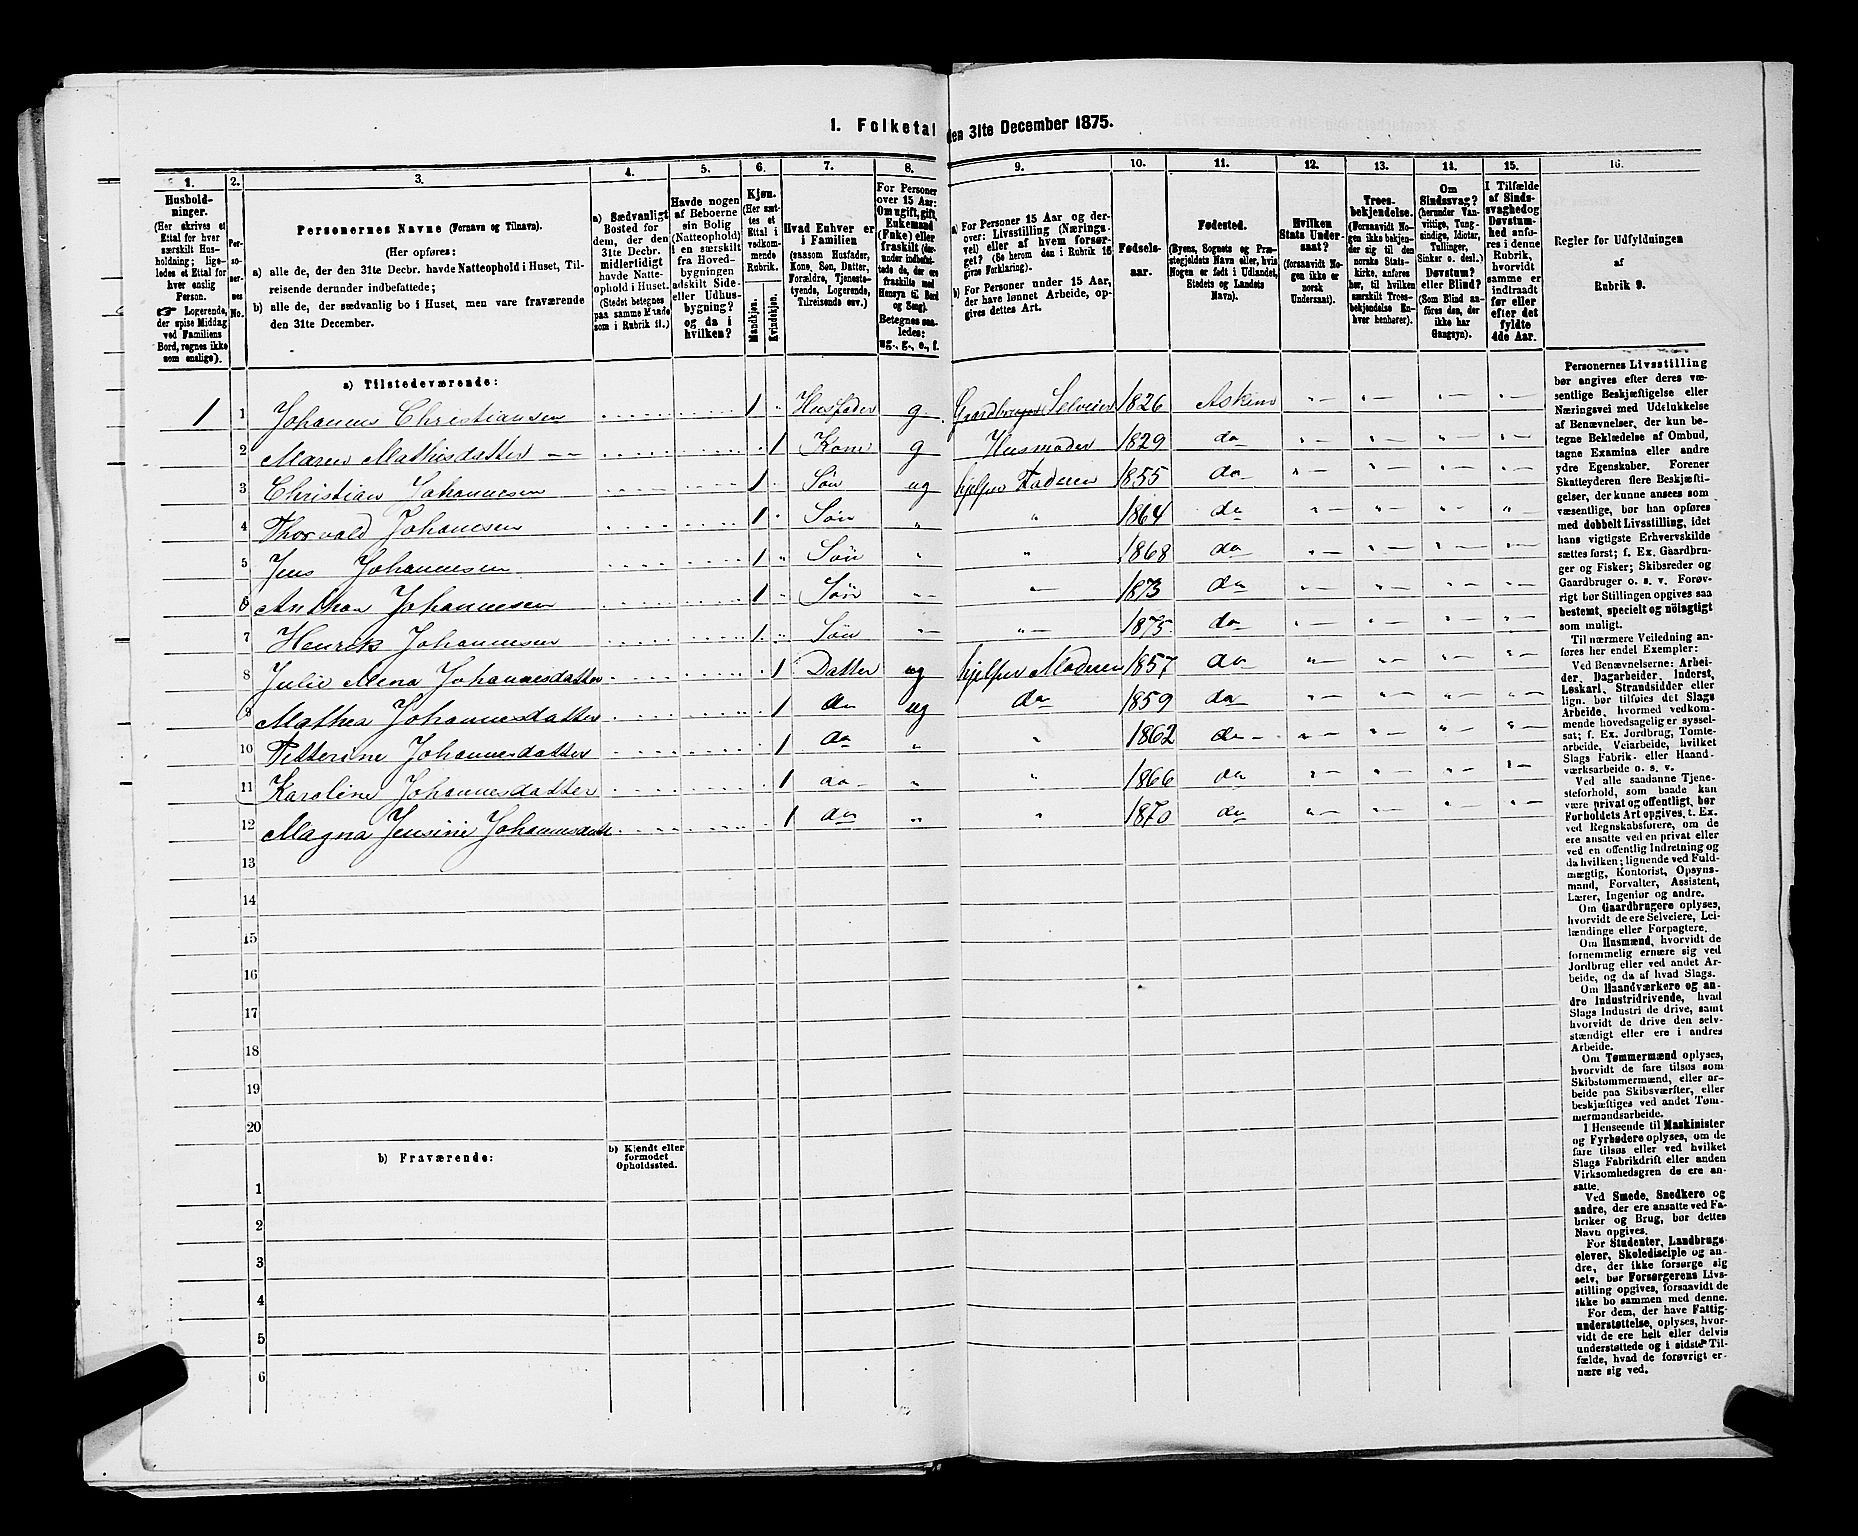 1. Folketal den 31te December 1875.
1. 2. 3. 4. 5. 6. 7. 8. 9. 10. 11. 12. 13. 14. 15. 16.
Hushold-
ninger.
(Her skrives et
Ettal for hver
særskilt Hus-
holdning; lige-
ledes et Ettal for
hver enslig
Person.
☞ Logerende,
der spise Middag
ved Familiens
Bord, regnes ikke
som enslige).
Per-
soner-
nes
No.
Personernes Navne (Fornavn og Tilnavn).
(Her opføres:
a) alle de, der den 31te Decbr. havde Natteophold i Huset, Til-
reisende derunder indbefattede;
b) alle de, der sædvanlig bo i Huset, men vare fraværende
den 31te December.
a) Sædvanligt
Bosted for
dem, der den
31te Decbr.
midlertidigt
havde Natte-
ophold i Huset.
(Stedet betegnes
paa samme Maade
som i Rubrik 11.)
Havde nogen
af Beboerne
sin Bolig
(Natteophold)
i en særskilt
fra Hoved-
bygningen
adskilt Side-
eller Udhus-
bygning?
og da i
hvilken?
Kjøn.
(Her sæt-
tes et
Ettal i
vedkom-
mende
Rubrik.
Mandkjøn.
Kvindekjøn.
Hvad Enhver er
i Familien
(saasom Husfader,
Kone, Søn, Datter,
Forældre, Tjeneste-
tyende, Logerende,
Tilreisende osv.)
For Personer
over 15 Aar:
Om ugift, gift,
Enkemand
(Enke) eller
fraskilt (der-
under indbefat-
tede de, der ere
fraskilte med
Hensyn til Bord
og Seng).
Betegnes saa-
ledes:
ug., g., e., f.
a) For Personer 15 Aar og der-
over: Livsstilling (Nærings-
vei) eller af hvem forsør-
get? (Se herom den i Rubrik 16
givne Forklaring).
b) For Personer under 15 Aar,
der have lønnet Arbeide, op-
gives dettes Art.
Fødsels-
aar.
Fødested.
(Byens, Sognets og Præ-
stegjeldets Navn eller, hvis
Nogen er født i Udlandet,
Stedets og Landets
Navn).
Hvilken
Stats Under-
saat?
(forsaavidt No-
gen ikke er
norsk
Undersaat).
Troes-
bekjendelse.
(Forsaavidt No-
gen ikke bekjen-
der sig til den
norske Stats-
kirke, anføres
her, til hvilken
særskilt Troes-
bekjendelse En-
hver henhører).
Om
Sindssvag?
(herunder Van-
vittige, Tung-
sindige, Idioter,
Tullinger,
Sinker o. desl.)
Døvstum?
eller Blind?
(Som Blind an-
føres den, der
ikke har
Gangsyn).
I Tilfælde
af Sinds-
svaghed og
Døvstum-
hed anfø-
res i denne
Rubrik,
hvorvidt
samme er
indtraadt
før eller
efter det
fyldte
4de Aar.
Regler for Udfyldningen
af
Rubrik 9.
a) Tilstedeværende:
1 1 Johannes Christiansen 1 Husfader g. Gaardbruger Selveier 1826 Askim
2 Maren Mathisdatter 1 Kone g Husmoder 1829 do
3 Christian Johannesen 1 Søn ug hjelper Faderen 1855 do
4 Thorvald Johannesen 1 Søn " " 1864 do
5 Jens Johannesen 1 Søn " " 1868 do
6 Anthon Johannesen 1 Søn " " 1873 do
7 Henrik Johannesen 1 Søn " " 1875 do
8 Julie Mena Johannesdatter 1 Datter ug hjelper Moderen 1857 do
9 Mathea Johannesdatter 1 do ug do 1859 do
10 Petterine Johannesdatter 1 do " " 1862 do
11 Karoline Johannesdatter 1 do " " 1866 do
12 Magna Jensine Johannesdatt 1 do " " 1870 do
13
14
15
16
17
18
19
20
b) Fraværende:
b) Kjendt eller
formodet
Opholdssted.
1
2
3
4
5
6
Personernes Livsstilling
bør angives efter deres væ-
sentlige Beskjæftigelse eller
Næringsvei med Udelukkelse
af Benævnelser, der kun be-
tegne Beklædelse af Ombud,
tagne Examina eller andre
ydre Egenskaber. Forener
Skatteyderen flere Beskjæfti-
gelser, der kunne ansees som
væsentlige, bør han opføres
med dobbelt Livsstilling, idet
hans vigtigste Erhvervskilde
sættes først; f. Ex. Gaardbru-
ger og Fisker; Skibsreder og
Gaardbruger o. s. v. Forøv-
rigt bør Stillingen opgives saa
bestemt, specielt og nöiagtigt
som muligt.
Til nærmere Veiledning an-
føres her endel Exempler:
Ved Benævnelserne: Arbei-
der, Dagarbeider, Inderst,
Løskarl, Strandsidder eller
lign. bør tilføies det Slags
Arbeide, hvormed vedkom-
mende hovedsagelig er syssel-
sat; f. Ex. Jordbrug, Tomte-
arbeide, Veiarbeide, hvilket
Slags Fabrik- eller Haand-
værksarbeide o. s. v.
Ved alle saadanne Tjene-
steforhold, som baade kan
være privat og offentligt, bør
Forholdets Art opgives, f. Ex.
ved Regnskabsførere, om de
ere ansatte ved en privat eller
ved en offentlig Indretning og
da hvilken; lignende ved Fuld-
mægtig, Kontorist, Opsyns-
mand, Forvalter, Assistent,
Lærer, Ingeniør og andre.
Om Gaardbrugere oplyses,
hvorvidt de ere Selveiere, Lei-
lændinge eller Forpagtere.
Om Husmænd, hvorvidt de
fornemmelig ernære sig ved
Jordbrug eller ved andet Ar-
beide, og da af hvad Slags.
Om Haandværkere og an-
dre Industridrivende, hvad
Slags Industri de drive, samt
hvorvidt de drive den selv-
stændigt eller ere i andres
Arbeide.
Om Tømmermænd oplyses,
hvorvidt de fare tilsøs som
Skibstømmermænd, eller ar-
beide paa Skibsværfter, eller
beskjæftiges ved andet Tøm-
mermandsarbeide.
I Henseende til Maskinister
og Fyrbødere oplyses, om de
fare tilsøs eller ved hvilket
Slags Fabrikdrift eller anden
Virksomhedsgren de ere an-
satte.
Ved Smede, Snedkere og
andre, der ere ansatte ved Fa-
briker og Brug, bør dettes
Navn opgives.
For Studenter, Landbrugs-
elever, Skoledisciple og an-
dre, der ikke forsørge sig
selv, bør Forsørgerens Livs-
stilling opgives, forsaavidt de
ikke bo sammen med denne.
For dem, der have Fattig-
understøttelse, oplyses, hvor-
vidt de ere helt eller delvis
understøttede og i sidste Til-
fælde, hvad de forøvrigt er-
nære sig ved.